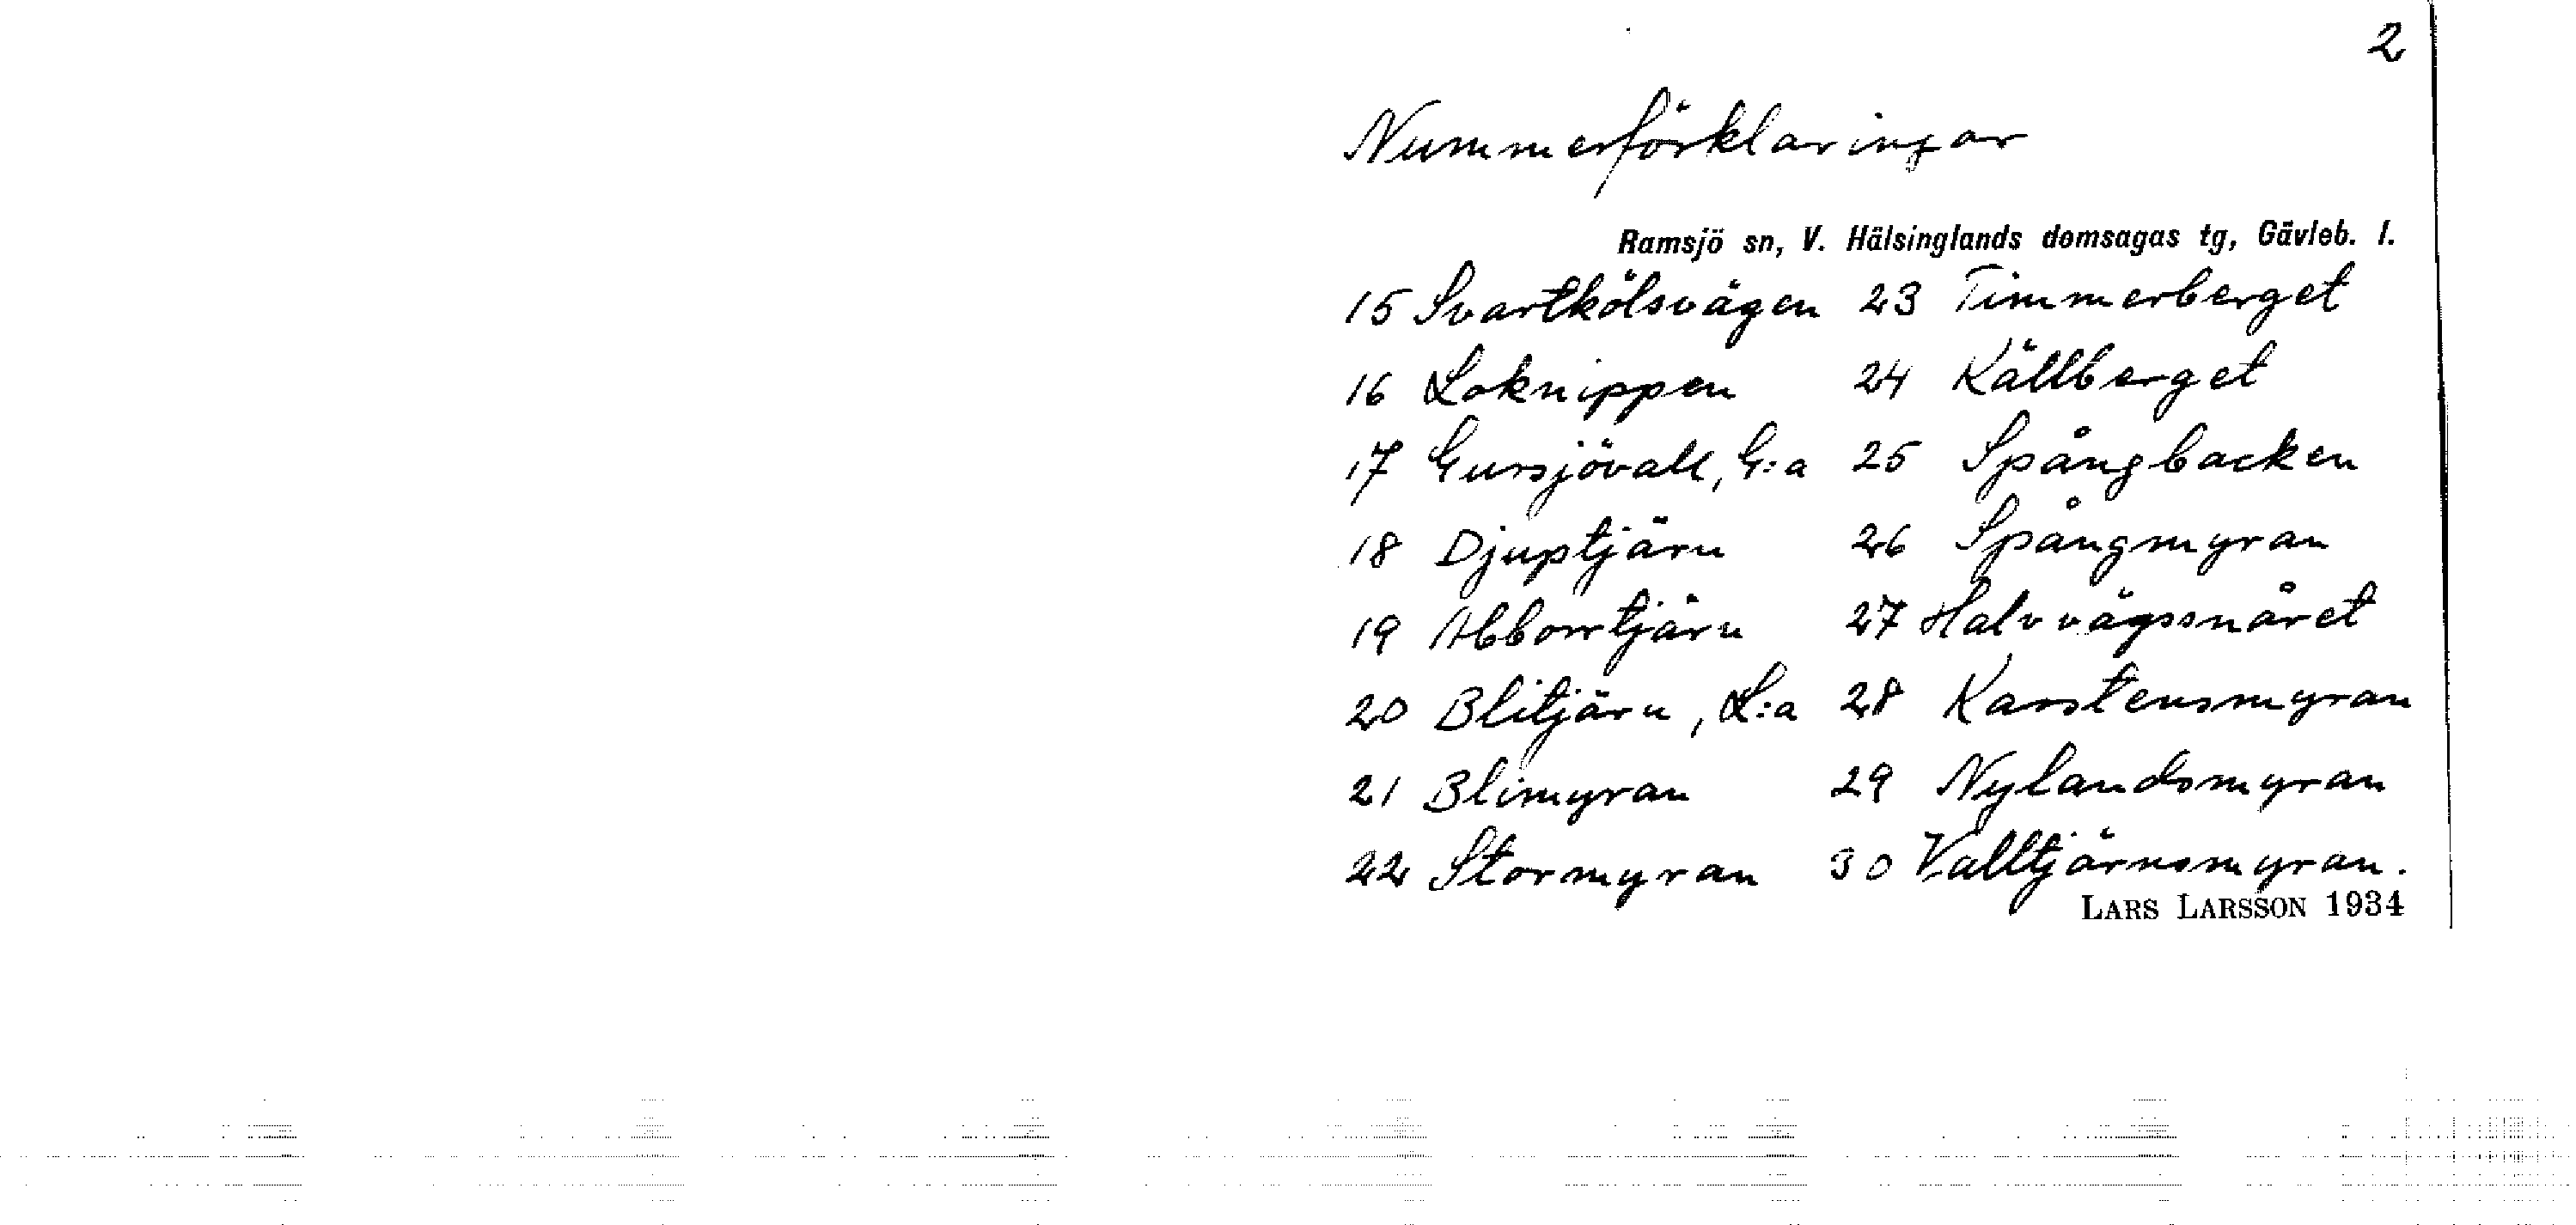 2
Nummerförklaringar
Ramsjö sn, V. Hälsinglands domsagas tg, Gävleb. l.
15 Svartkölsvägen 23 Timmerberget
16 Loknippen 24 Källberget
17 Gursjövall, G:a 25 Spångbacken
18 Djuptjärn 26 Spångmyran
19 Abborrtjärn 27 Halvvägssnåret
20 Blitjärn, L:a 28 Karstensmyran
21 Blimyran 29 Nylandsmyran
22 Stormyran 30 Valltjärnsmyran.
LARS LARSSON 1934